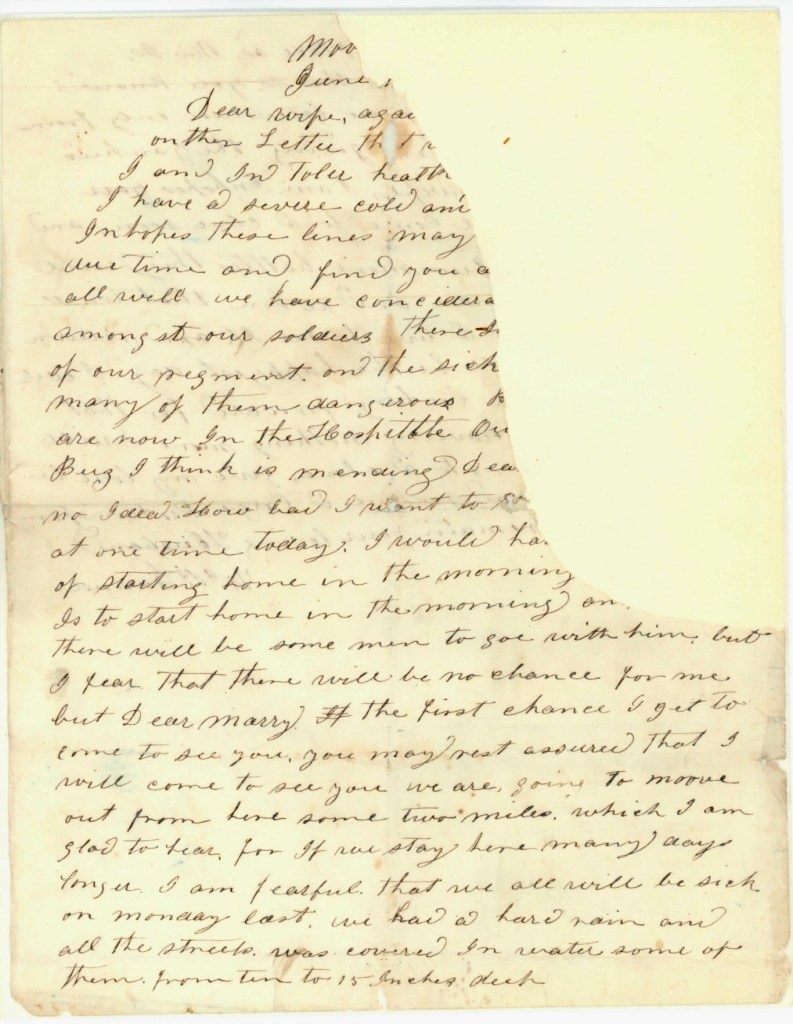 Mov
June
Dear wife, agai
onther Letter that
I am In toler health
I have a severe cold and
In hopes these lines may
due time and find you a
all well we have considera
amongst our soldiers there
of our regment. on the sick
many of them dangerous
are now In the Hospitble Ou
Bug I think is mending Dea
no Idea How bad I want to
at one time today. I would ha
of starting home in the morning
Is to start home in the morning an
there will be some men to goe with him. but
I fear that there will be no chance for me
but Dear Marry. the first chance I get to
come to see you, you may rest assured that I
will come to see you we are, going to moove
out from here some two miles. which I am
glad to hear, for If we stay here many days
longer. I am fearful. that we all will be sick
on monday last. we had a hard rain and
all the streets. was covered In water some of
them. from ten to 15 Inches deep